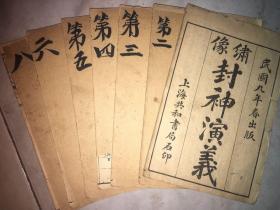 民國九年春出版
繡像
封神演義
上海共和書局石印
第二
第三
第四
第五
六
八